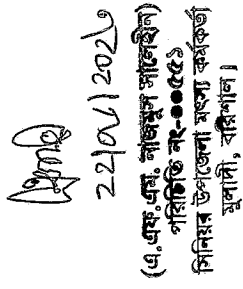 ২২/০৮/২০২৩
(এ.এফ.এম. নাজমুস সালেহীন)
পরিচিতি নং-০০৫৫১
সিনিয়র উপজেলা মৎস্য কর্মকর্তা
মুলাদী, বরিশাল।